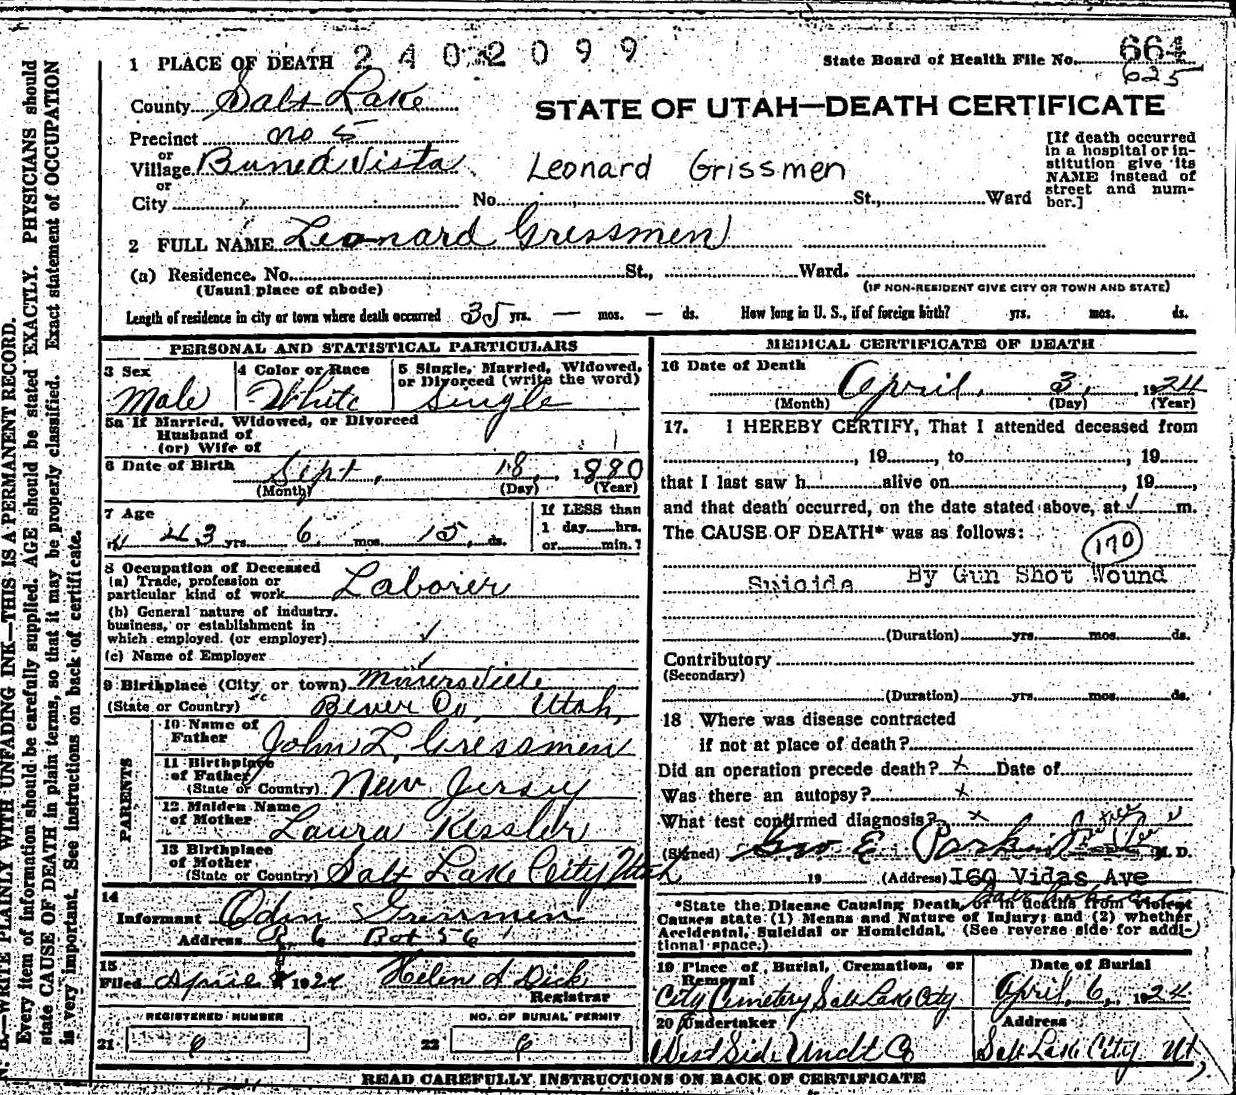 1 PLACE OF DEATH 2 4 0 2 0 9 9
State Board of Health File No. 664
625
County Salt Lake
STATE OF UTAH—DEATH CERTIFICATE
Precinct no 5
or
Village Buned Vista
or
City
Leonard Grissmen
No. St., Ward
[If death occurred
in a hospital or in-
stitution give its
NAME instead of
street and num-
ber.]
2 FULL NAME Leonard Gressmen
(a) Residence. No. St., Ward.
(Usual place of abode)
(IF NON-RESIDENT GIVE CITY OR TOWN AND STATE)
Length of residence in city or town where death occurred 35 yrs. — mos. — ds. How long in U. S., if of foreign birth? yrs. mos. ds.
PERSONAL AND STATISTICAL PARTICULARS
3 Sex
Male
4 Color or Race
White
5 Single, Married, Widowed,
or Divorced (write the word)
Single
5a If Married, Widowed, or Divorced
Husband of
(or) Wife of
6 Date of Birth Sept, 18, 1880
(Month) (Day) (Year)
7 Age
43 yrs. 6 mos. 15 ds.
If LESS than
1 day hrs.
or min.?
8 Occupation of Deceased
(a) Trade, profession or
particular kind of work Laborer
(b) General nature of industry.
business, or establishment in
which employed. (or employer) ✓
(c) Name of Employer ✓
9 Birthplace (City or town) Minersville
(State or Country) Bever Co, Utah,
PARENTS
10 Name of
Father John L. Gressmen
11 Birthplace
of Father
(State or Country) New Jersey
12 Maiden Name
of Mother Laura Kessler
13 Birthplace
of Mother
(State or Country) Salt Lake City Utah
14
Informant Odin Gressmen
Address R. 6 Box 56
15
Filed April 1924 Helen S Dick
Registrar
REGISTERED NUMBER
21 6
NO. OF BURIAL PERMIT
22 6
MEDICAL CERTIFICATE OF DEATH
16 Date of Death
April, 3, 1924
(Month) (Day) (Year)
17. I HEREBY CERTIFY, That I attended deceased from
, 19 , to , 19 ,
that I last saw h alive on , 19 ,
and that death occurred, on the date stated above, at ✓ m.
The CAUSE OF DEATH* was as follows:
170
Suicide By Gun Shot Wound
(Duration) yrs. mos. ds.
Contributory
(Secondary)
(Duration) yrs. mos. ds.
18 Where was disease contracted
if not at place of death?
Did an operation precede death? x Date of
Was there an autopsy? x
What test confirmed diagnosis? x
(Signed) Geo E. Parkin M. D.
19 (Address) 160 Vidas Ave
*State the Disease Causing Death, in deaths from Violent
Causes state (1) Means and Nature of Injury; and (2) whether
Accidental, Suicidal or Homicidal. (See reverse side for addi-
tional space.)
19 Place of Burial, Cremation, or
Removal
City Cemetery Salt Lake City
Date of Burial
April, 6, 1924
20 Undertaker
West Side Undt Co
Address
Salt Lake City Ut
READ CAREFULLY INSTRUCTIONS ON BACK OF CERTIFICATE
N. B.—WRITE PLAINLY WITH UNFADING INK—THIS IS A PERMANENT RECORD.
Every item of information should be carefully supplied. AGE should be stated EXACTLY. PHYSICIANS should
state CAUSE OF DEATH in plain terms, so that it may be properly classified. Exact statement of OCCUPATION
is very important. See instructions on back of certificate.